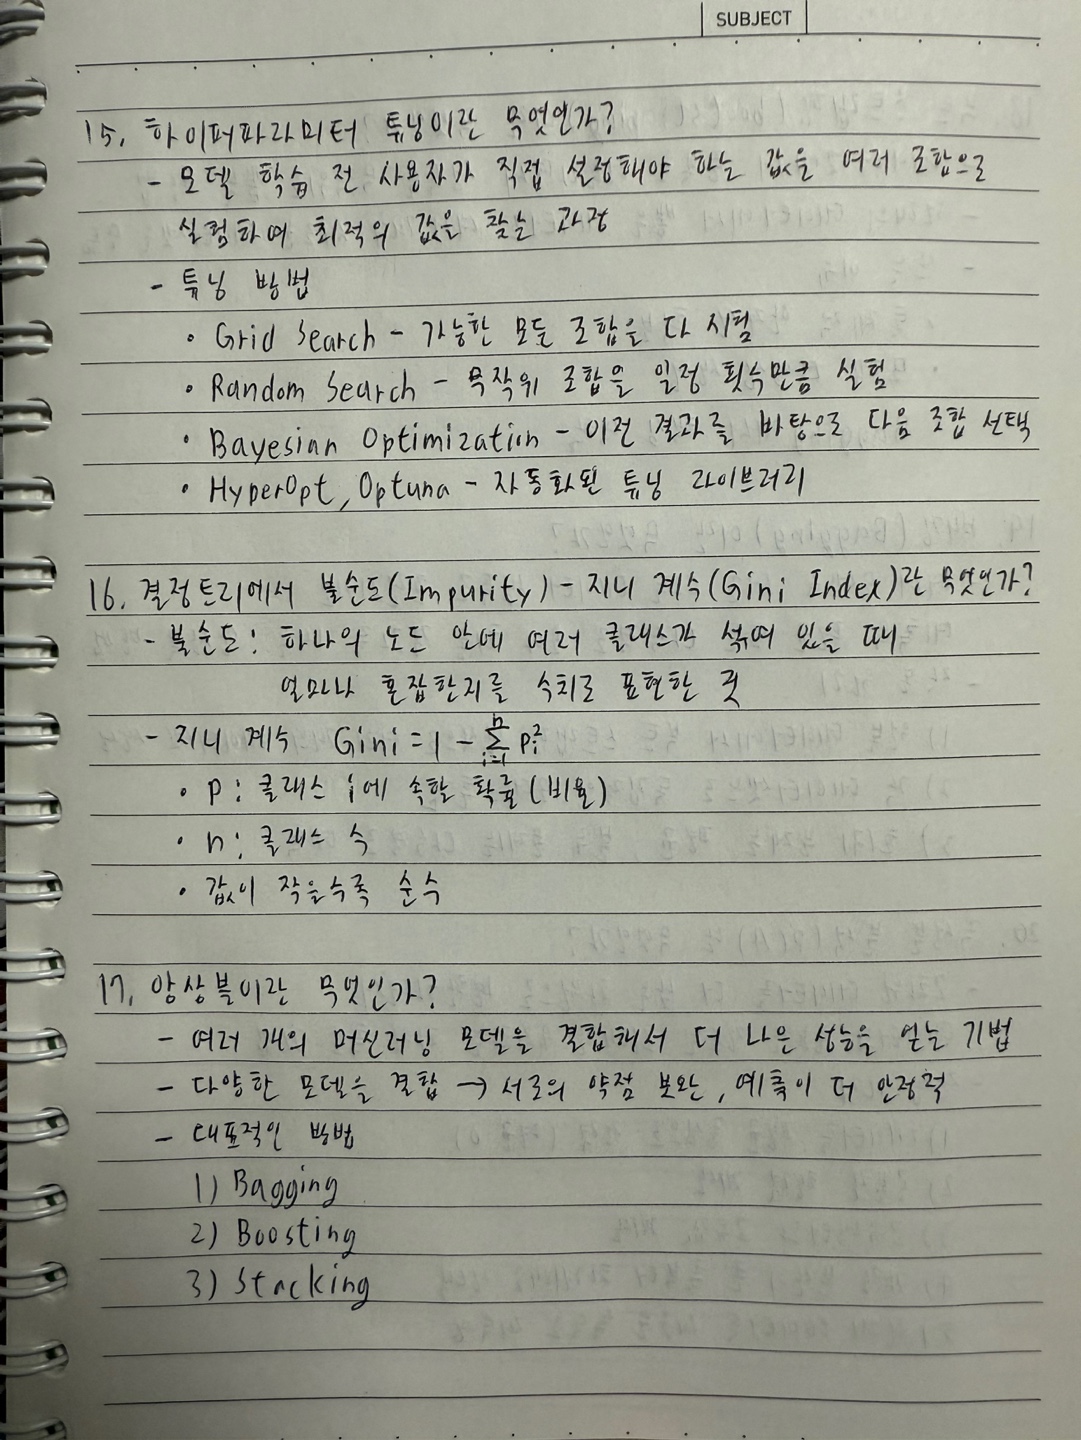 SUBJECT
15. 하이퍼파라미터 튜닝이란 무엇인가?
- 모델 학습 전 사용자가 직접 설정해야 하는 값을 여러 조합으로
실험하여 최적의 값을 찾는 과정
- 튜닝 방법
• Grid Search - 가능한 모든 조합을 다 시험
• Random Search - 무작위 조합을 일정 횟수만큼 실험
• Bayesian Optimization - 이전 결과를 바탕으로 다음 조합 선택
• HyperOpt, Optuna - 자동화된 튜닝 라이브러리
16. 결정트리에서 불순도(Impurity) - 지니 계수(Gini Index)란 무엇인가?
- 불순도: 하나의 노드 안에 여러 클래스가 섞여 있을 때
얼마나 혼잡한지를 수치로 표현한 것
- 지니 계수 Gini = 1 - \sum_{i=1}^{n} p_i^2
• p: 클래스 i에 속할 확률(비율)
• n: 클래스 수
• 값이 작을수록 순수
17. 앙상블이란 무엇인가?
- 여러 개의 머신러닝 모델을 결합해서 더 나은 성능을 얻는 기법
- 다양한 모델을 결합 → 서로의 약점 보완, 예측이 더 안정적
- 대표적인 방법
1) Bagging
2) Boosting
3) Stacking